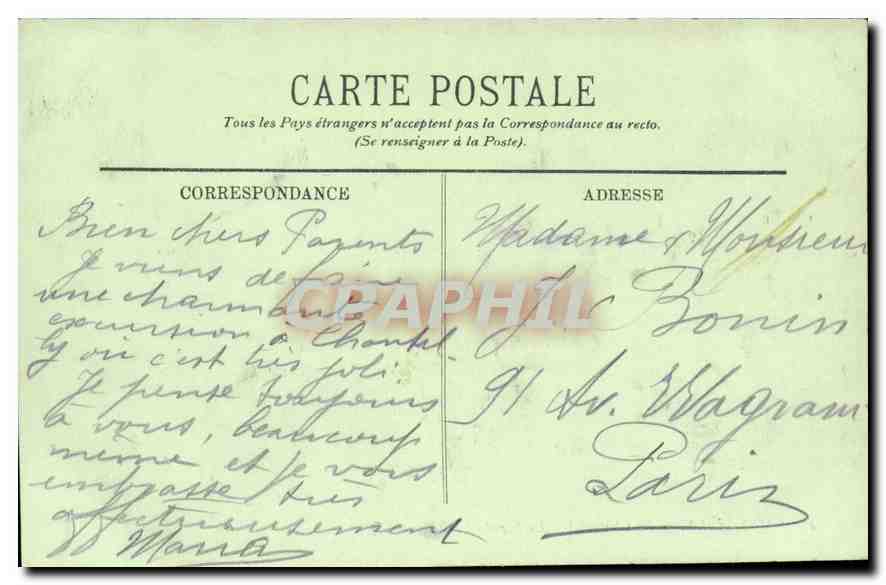 CARTE POSTALE
Tous les Pays étrangers n'acceptent pas la Correspondance au recto.
(Se renseigner à la Poste).
CORRESPONDANCE
Bien chers Parents
Je viens de faire
une charmante
excursion à Chantil-
ly où c'est très joli.
Je pense toujours
à vous, beaucoup
même et je vous
embrasse très
affectueusement
Maria
ADRESSE
Madame & Monsieur
J Bonin
91 Av. Wagram
Paris
CPAPHIL